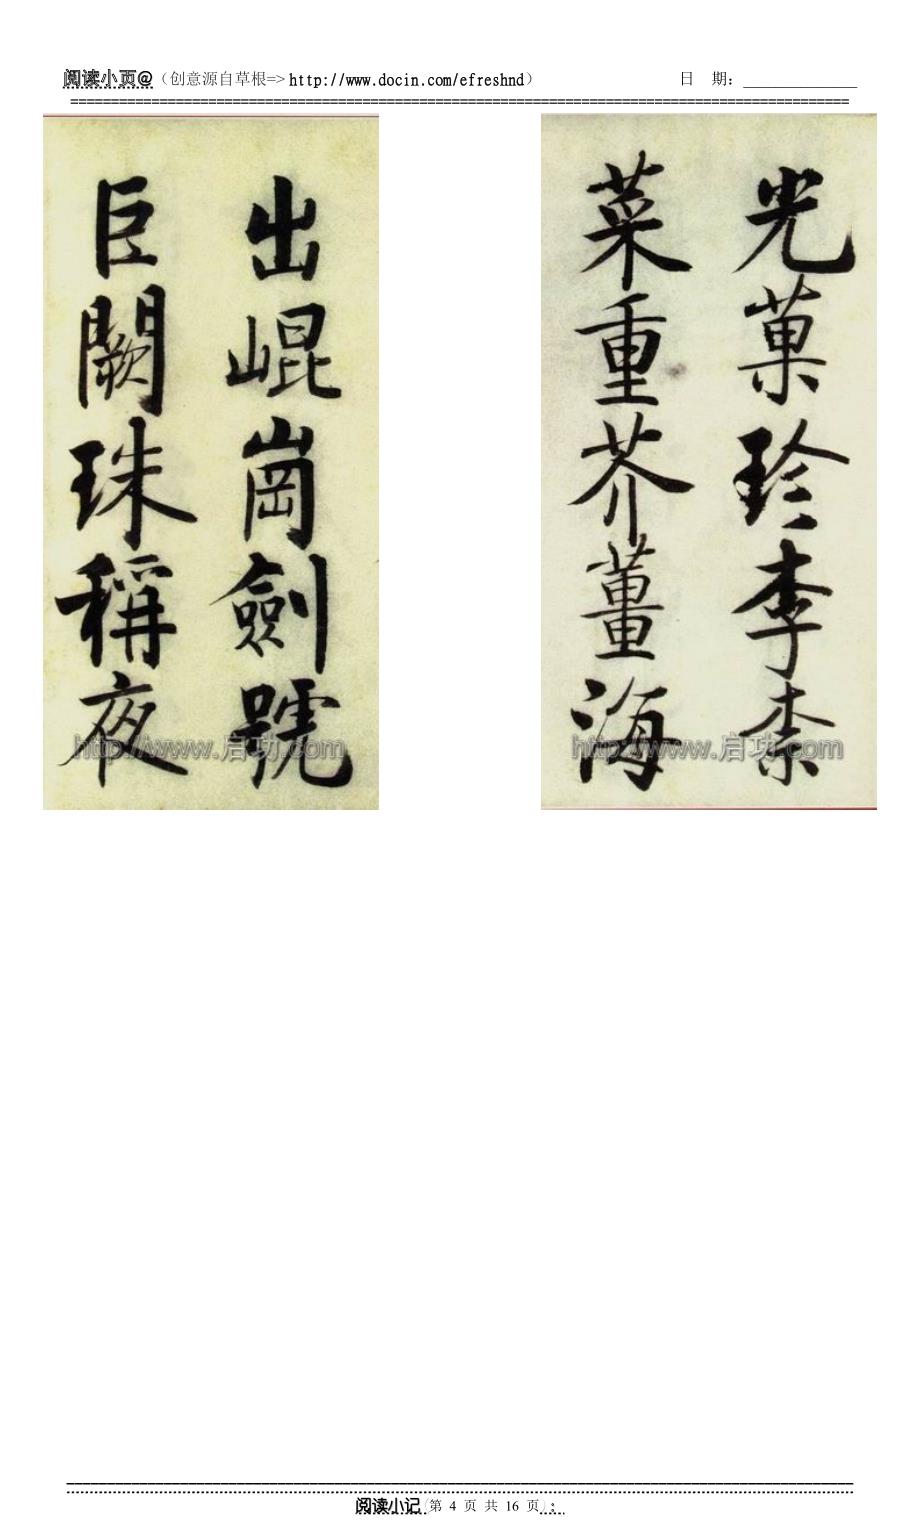 阅读小页@（创意源自草根=> http://www.docin.com/efreshnd） 日 期：
出崐崗劍號
巨闕珠稱夜
http://www.启功.com
光菓珍李柰
菜重芥薑海
http://www.启功.com
阅读小记(第 4 页 共 16 页)：